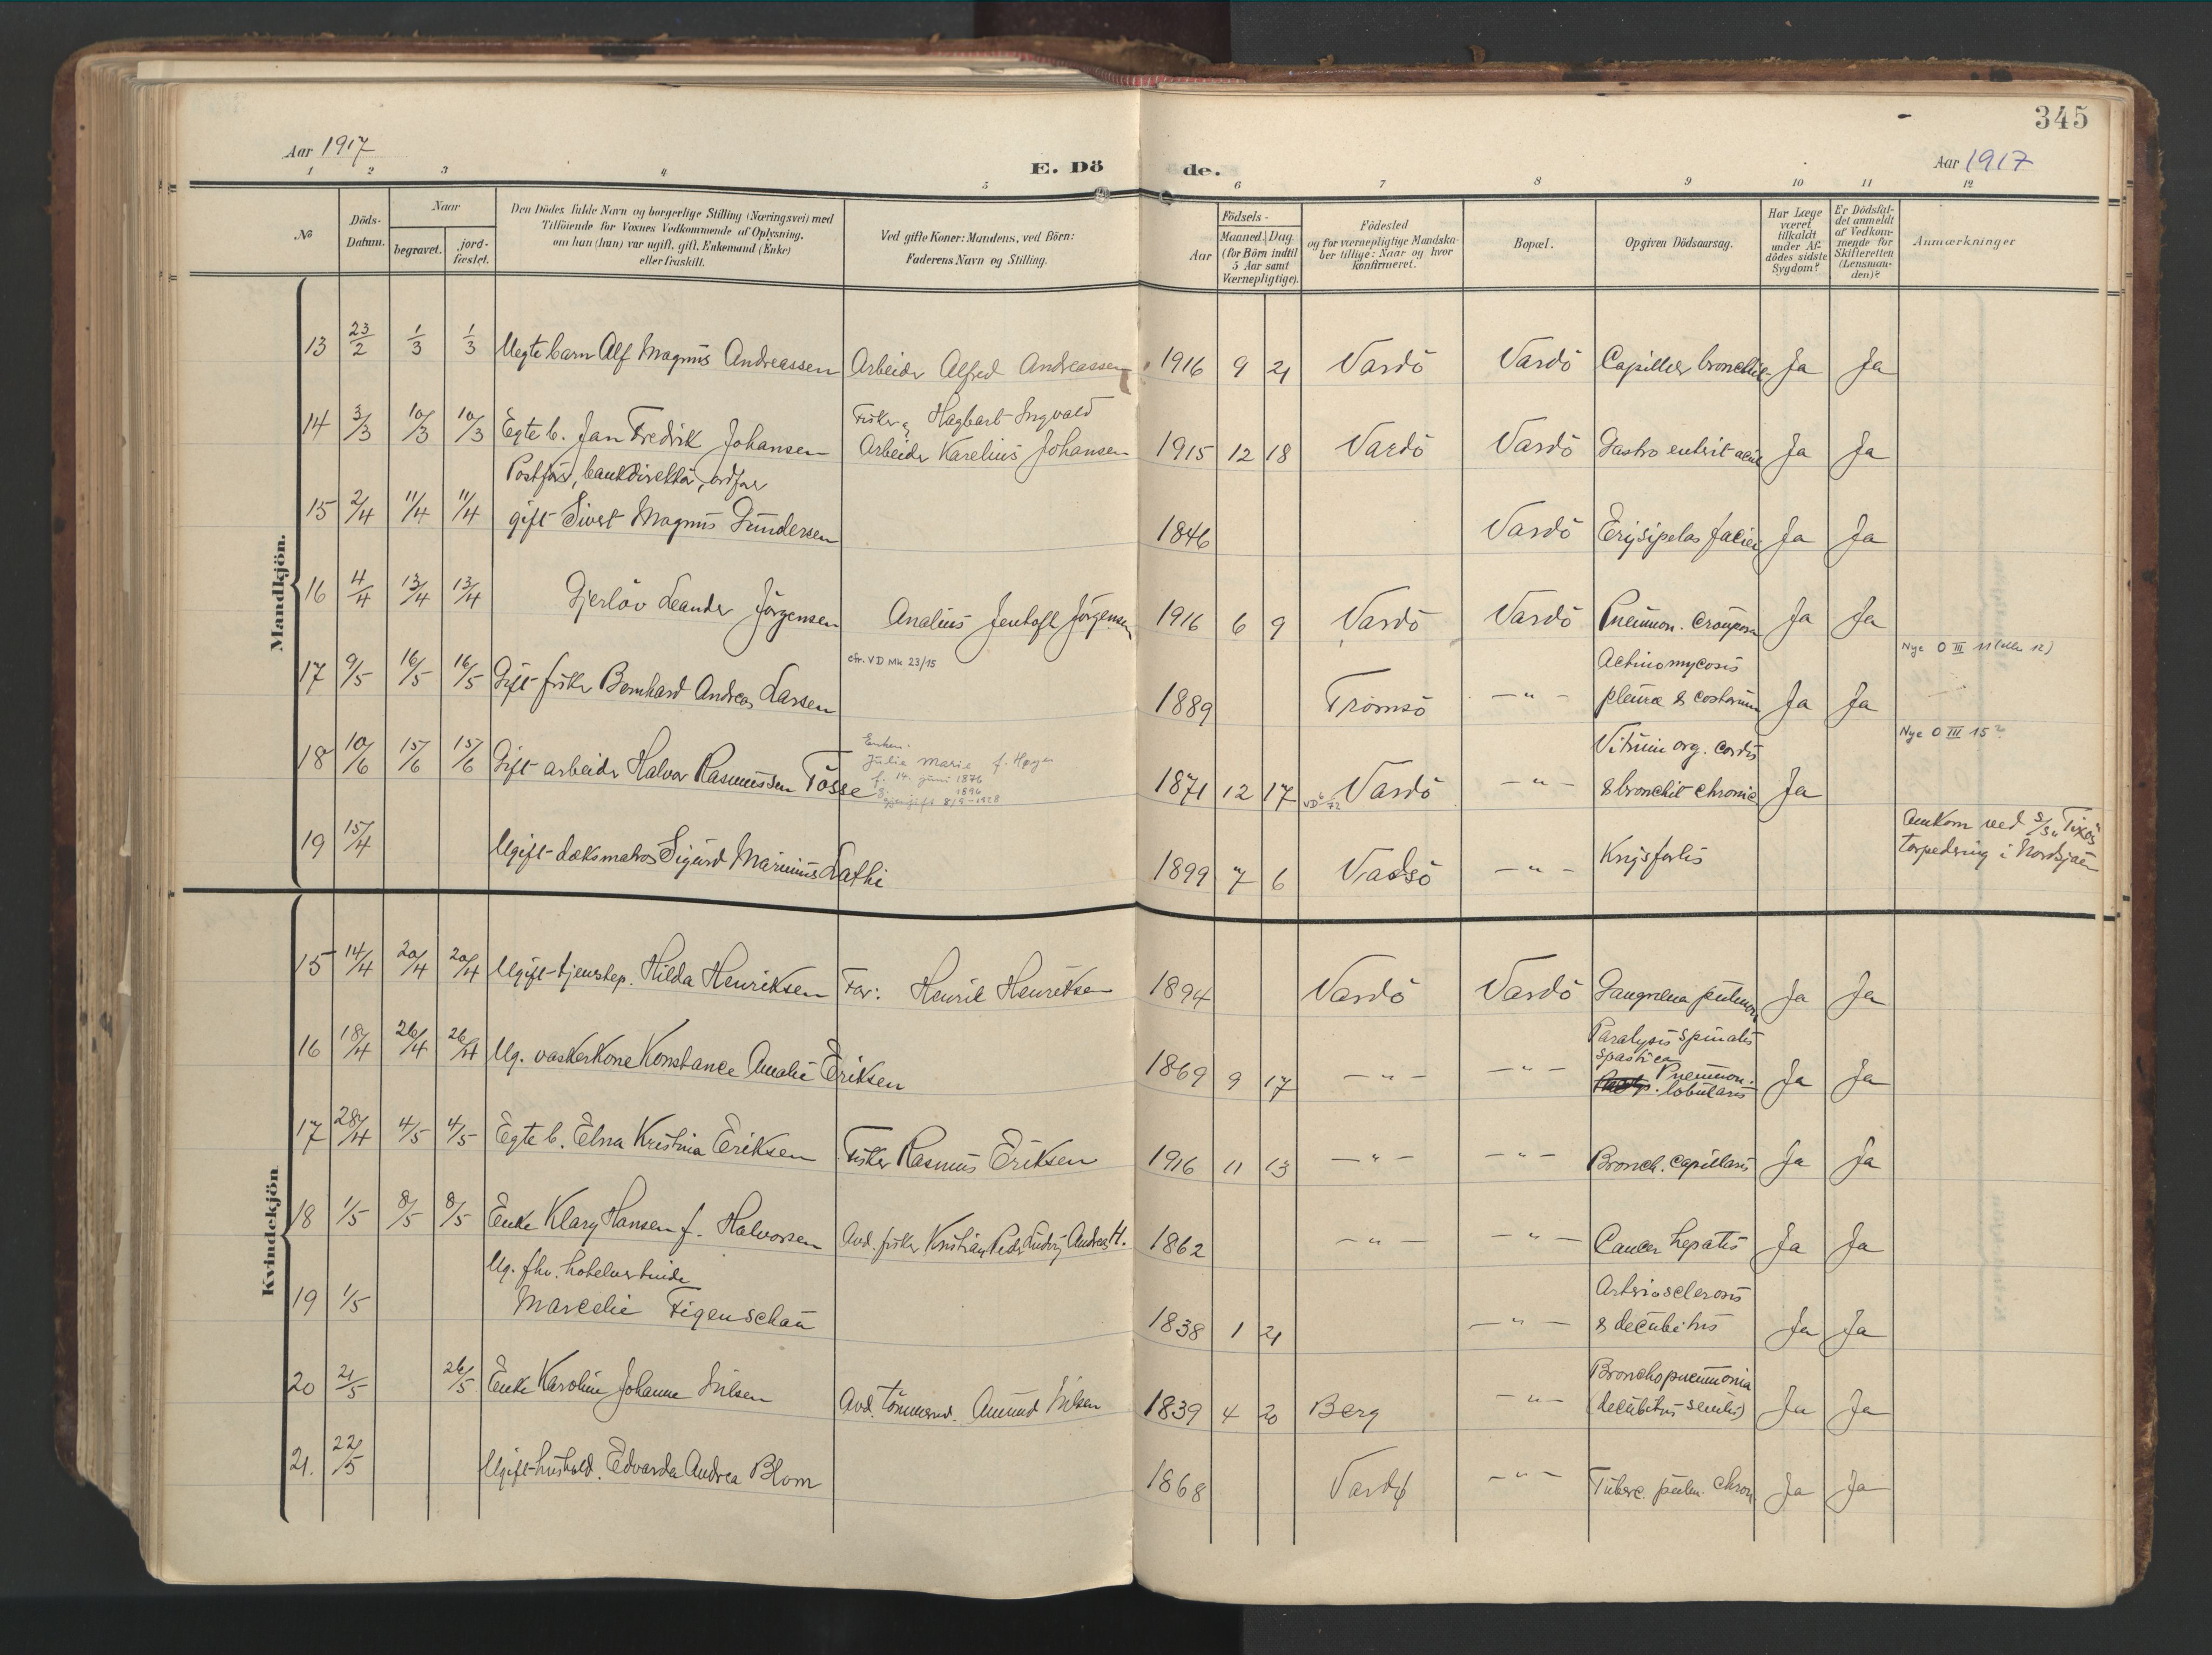 345
Aar 1917
E. Dö de.
Aar 1917
1 2 3 4 5 6 7 8 9 10 11 12
No
Döds-
Datum.
Naar
begravet.
jord-
fæstet.
Den Dödes fulde Navn og borgerlige Stilling (Næringsvei) med
Tilföiende for Voxnes Vedkommende af Oplysning,
om han (hun) var ugift, gift, Enkemand (Enke)
eller fraskilt.
Ved gifte Koner: Mandens, ved Börn:
Faderens Navn og Stilling.
Födsels-
Aar
Maaned. Dag
(for Börn indtil
5 Aar samt
Værnepligtige).
Födested
og for værnepligtige Mandska-
ber tillige: Naar og hvor
konfirmeret.
Bopæl.
Opgiven Dödsaarsag.
Har Læge
været
tilkaldt
under Af-
dödes sidste
Sygdom?
Er Dödsfal-
det anmeldt
af Vedkom-
mende for
Skifteretten
(Lensman-
den)?
Anmærkninger
Mandkjön.
13 23/2 1/3 1/3 Uegte barn Alf Magnus Andreassen Arbeider Alfred Andreassen 1916 9 21 Vardö Vardö Capillær bronchit Ja Ja
Fisker Hagbart Ingvald
14 3/3 10/3 10/3 Egte b. Jan Fredrik Johansen Arbeider Karelius Johansen 1915 12 18 Vardö Vardö Gastro enterit acut Ja Ja
Postfør, bankdirektør, ordfør
15 2/4 11/4 11/4 gift Sivert Magnus Gundersen 1846 Vardö Erysipelas faciei Ja Ja
16 4/4 13/4 13/4 Gjerløv Leander Jörgensen Analius Jentoft Jörgensen 1916 6 9 Vardö Vardö Pneumon. crouposa Ja Ja
cfr. VD Mk 23/15
Actinomycosis
Nye O III 11 (eller 12)
17 9/5 16/5 16/5 Gift fisker Bernhard Andreas Larsen 1889 Tromsö — " — pleura & costarum Ja Ja
Enken:
Julie Marie f. Høyer
f. 14. juni 1876
g. 1896
gjengift 8/9-1928
Vitium org. cordis
Nye O III 15?
18 10/6 15/6 15/6 Gift arbeider Halvor Rasmussen Tosse 1871 12 17 VD 72 Vardö — " — & bronchit chronic Ja
19 15/4 Ugift dæksmatros Sigurd Marinius Lathi 1899 7 6 Vadsö — " — Krigsforlis
Omkom ved S/S
torpedering i Nordsjøen
Kvindekjön
15 14/4 20/4 20/4 Ugift tjenstep. Hilda Henriksen Far: Henrik Henriksen 1894 Vardö Vardö Gangrena pulmon Ja Ja
Paralysis spinalis
spastica
16 18/4 26/4 26/4 Ug. vaskerkone Konstance Amalie Eriksen 1869 9 17 — " — — " — Pneumon. lobularis Ja Ja
17 28/4 4/5 4/5 Egte b. Elna Kristina Eriksen Fisker Rasmus Eriksen 1916 11 13 — " — — " — Bronch. capillaris Ja Ja
18 1/5 8/5 8/5 Enke Klary Hansen f. Halvorsen Avd. fisker Kristian Peder Ludvig Andreas H. 1862 — " — — " — Cancer hepatis Ja Ja
Ug. fhv. hotelvertinde
Arteriosclerosis
19 1/5 Marcelie Figenschau 1838 1 21 — " — & decubitus Ja Ja
Bronchopneumonia
20 21/5 26/5 Enke Karoline Johanne Nilsen Avd. tömmerm. Amund Nilsen 1839 4 20 Berg — " — (decubitus senilis) Ja Ja
21. 22/5 Ugift hushold. Edvarda Andrea Blom 1868 Vardø — " — Tuberc. pulm. chron. Ja Ja